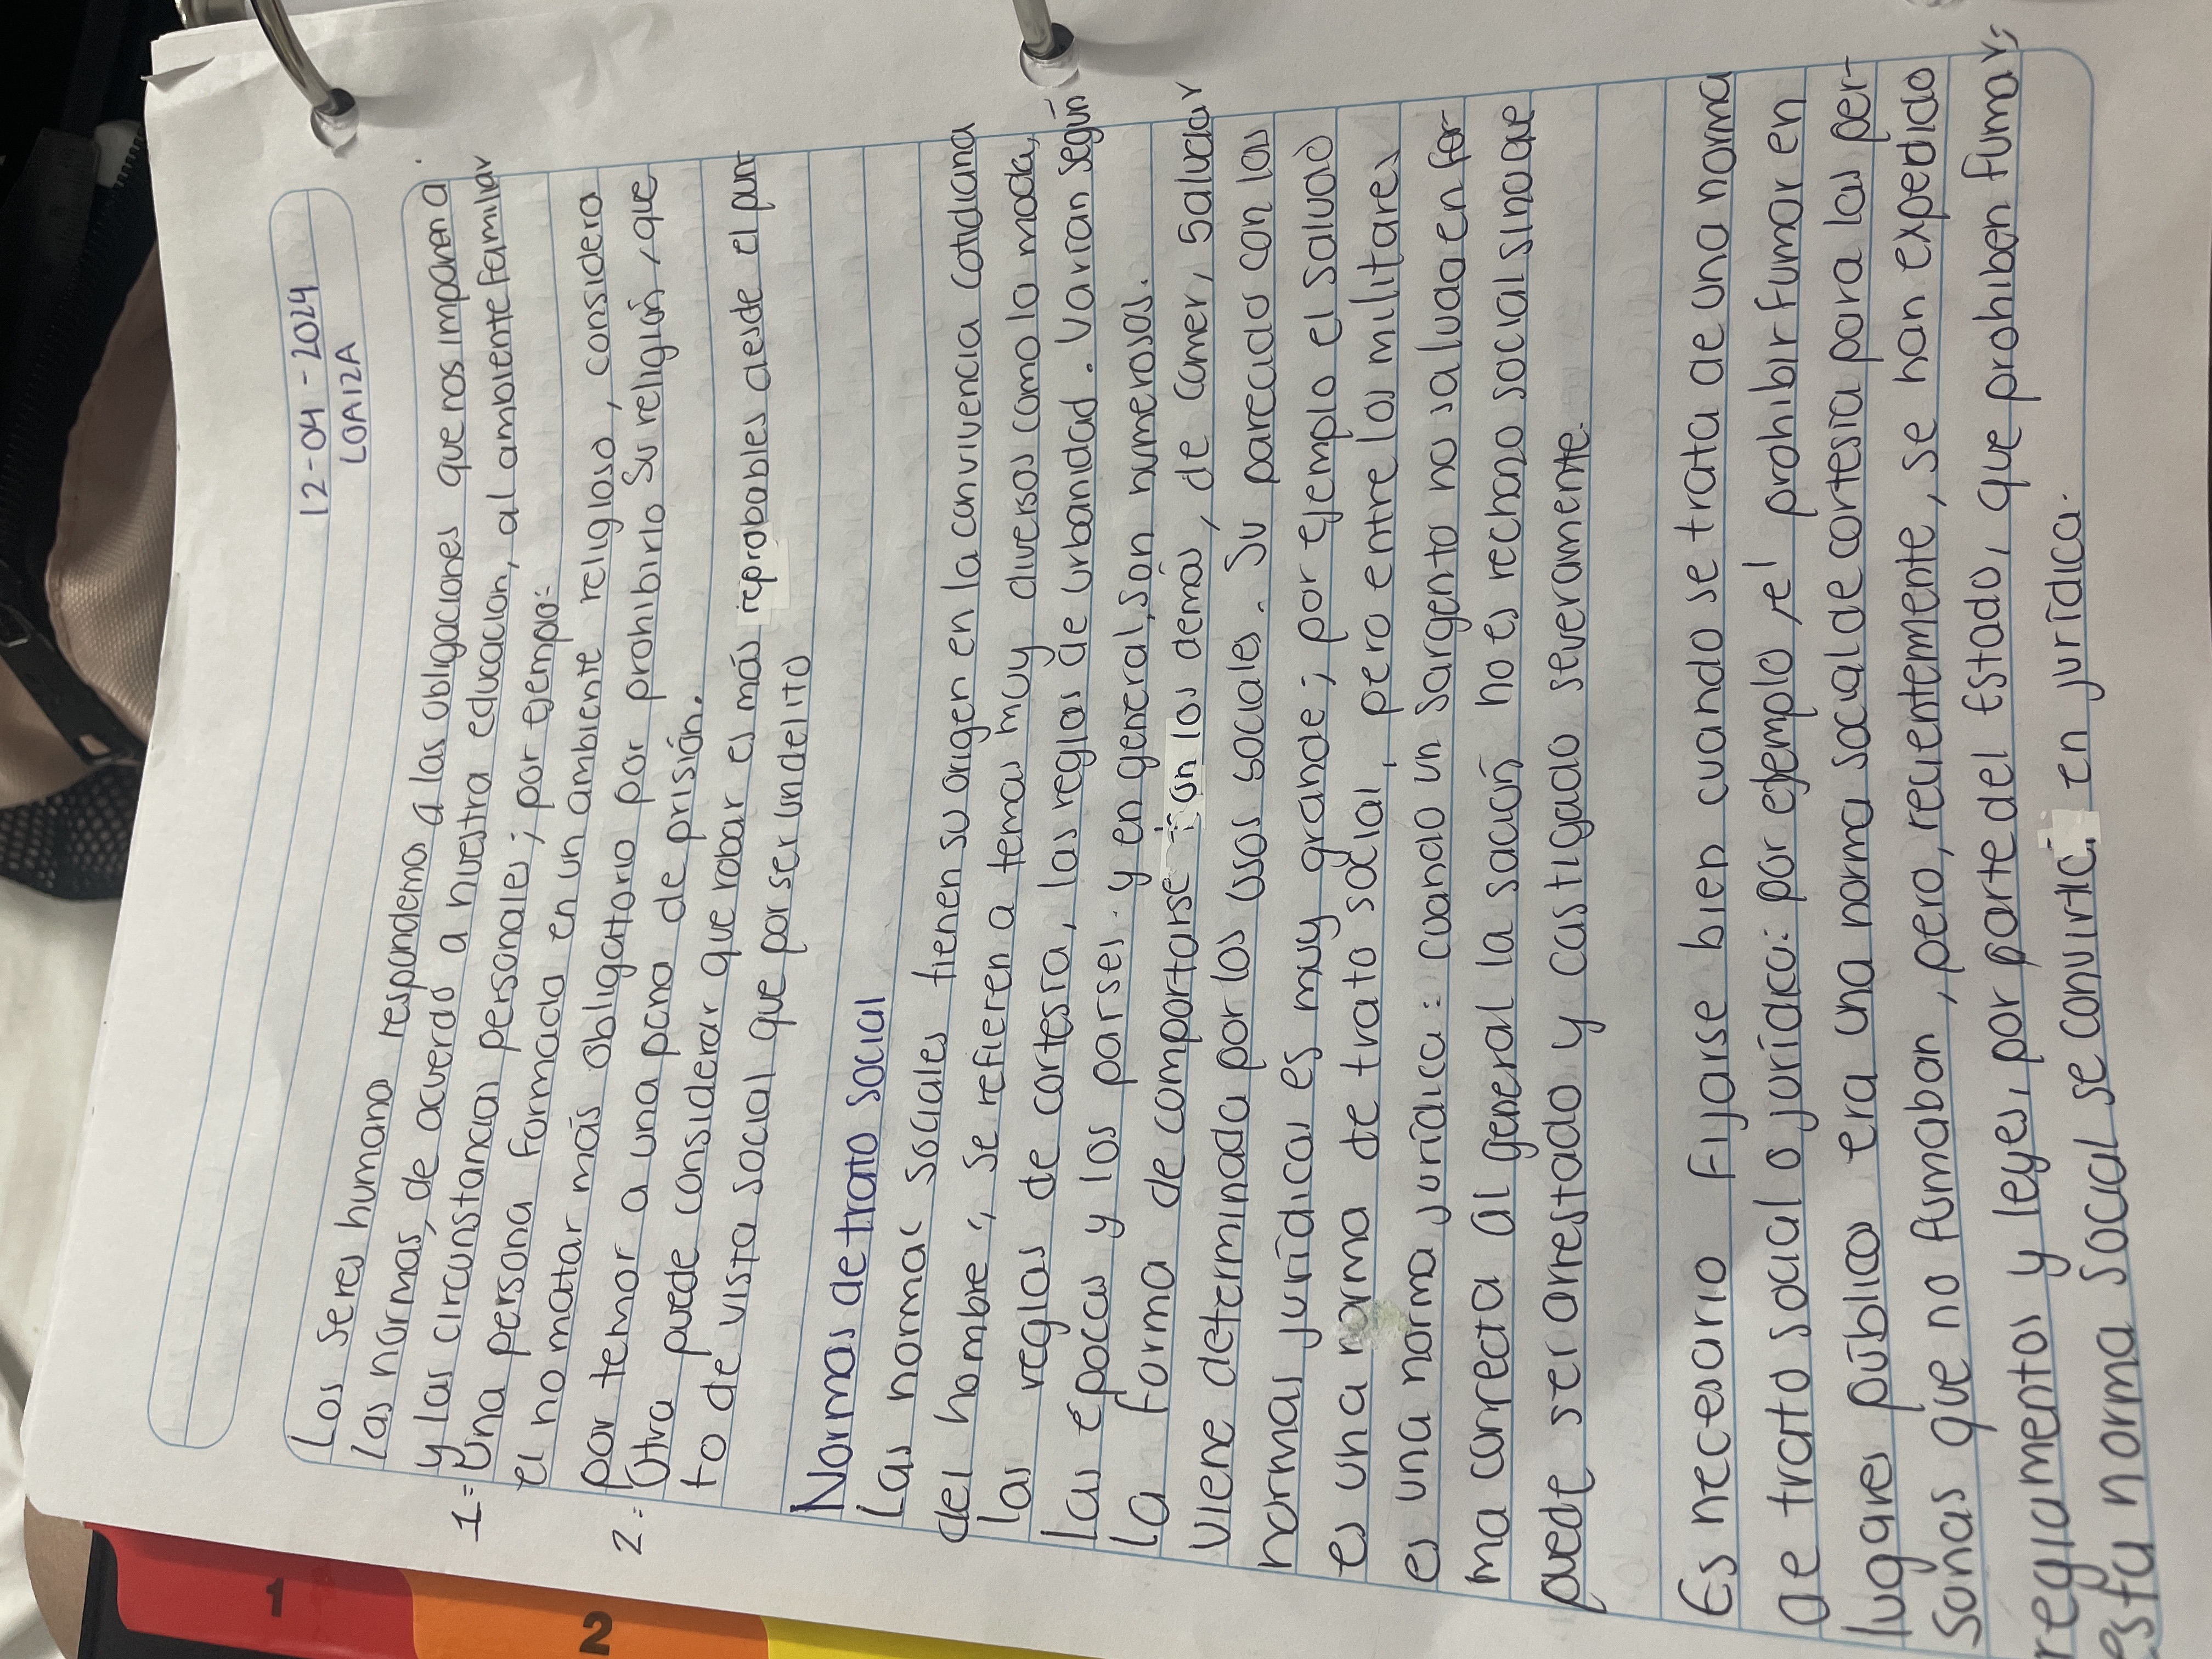 12-04-2024
LOAIZA
Los seres humano respondemos a las obligaciones que nos imponen a
las normas, de acuerdo a nuestra educacion, al ambiente familiar
y las circunstancias personales; por ejemplo:
1= Una persona formada en un ambiente religioso, considera
el no matar más obligatorio por prohibirlo su religión, que
por temor a una pena de prisión.
2= Otra puede considerar que robar es más reprobables desde el pun-
to de vista social que por ser un delito
Normas de trato social
Las normas sociales tienen su origen en la convivencia cotidiana
del hombre; se refieren a temas muy diversos como la moda,
las reglas de cortesía, las reglas de urbanidad. Varian según
las épocas y los parses. y en general, son numerosos.
La forma de comportarse con los demás, de comer, saludar
viene determinada por los usos sociales. Su parecido con las
normas jurídicas es muy grande; por ejemplo el saludo
es una norma de trato social, pero entre los militares
es una norma jurídica: cuando un sargento no saluda en for-
ma correcta al general la sación no es rechazo social sino que
puede ser arrestado y castigado severamente.
Es necesario fijarse bien cuando se trata de una norma
de trato social o jurídica: por ejemplo, el prohibir fumar en
lugares públicos era una norma social de cortesía para las per-
sonas que no fumaban, pero, recientemente, se han expedido
reglamentos y leyes, por parte del Estado, que prohiben fumar;
esta norma social se convirtio en jurídica.
1
2